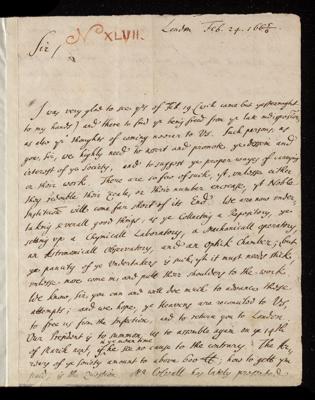 N XLVII.
London Feb. 24. 166⅚
Sir,
I was very glad to see yrs of Feb. 19 (wch came but yesternight
to my hands) and there to find ye being freed from ye late indisposition,
as also ye thoughts of coming nearer to Us. Such persons, as
you, Sir, we highly need to assert and promote ye designe and
interest of ye Society, and to suggest ye proper wayes of carrying
on their work. There are so few of such, yt, unlesse either
they redouble their zeale, or their number encrease, yt Noble
Institute will come far short of its End. We are now under-
taking severall good things, as ye Collecting a Repository, ye
setting up a Chymicall Laboratory, a Mechanicall operatory,
an Astronomicall Observatory, and an Optick Chamber; but
ye paucity of ye Undertakers is such, yt it must needs stick,
unlesse more come in, and put their shoulders to the work.
We know, Sir, you can and will doe much to advance these
attempts; and we hope, ye Heavens are reconciled to Us,
to free us from the Infection, and to return you to London.
Our President is to summon us to assemble again on ye 14th
in ye mean time
of March next, if he see no cause to the contrary. The Ar-
riers of ye Society amount to above 600 lb; how to gett ym
paid, is the Question. Mr Colwall has lately presented